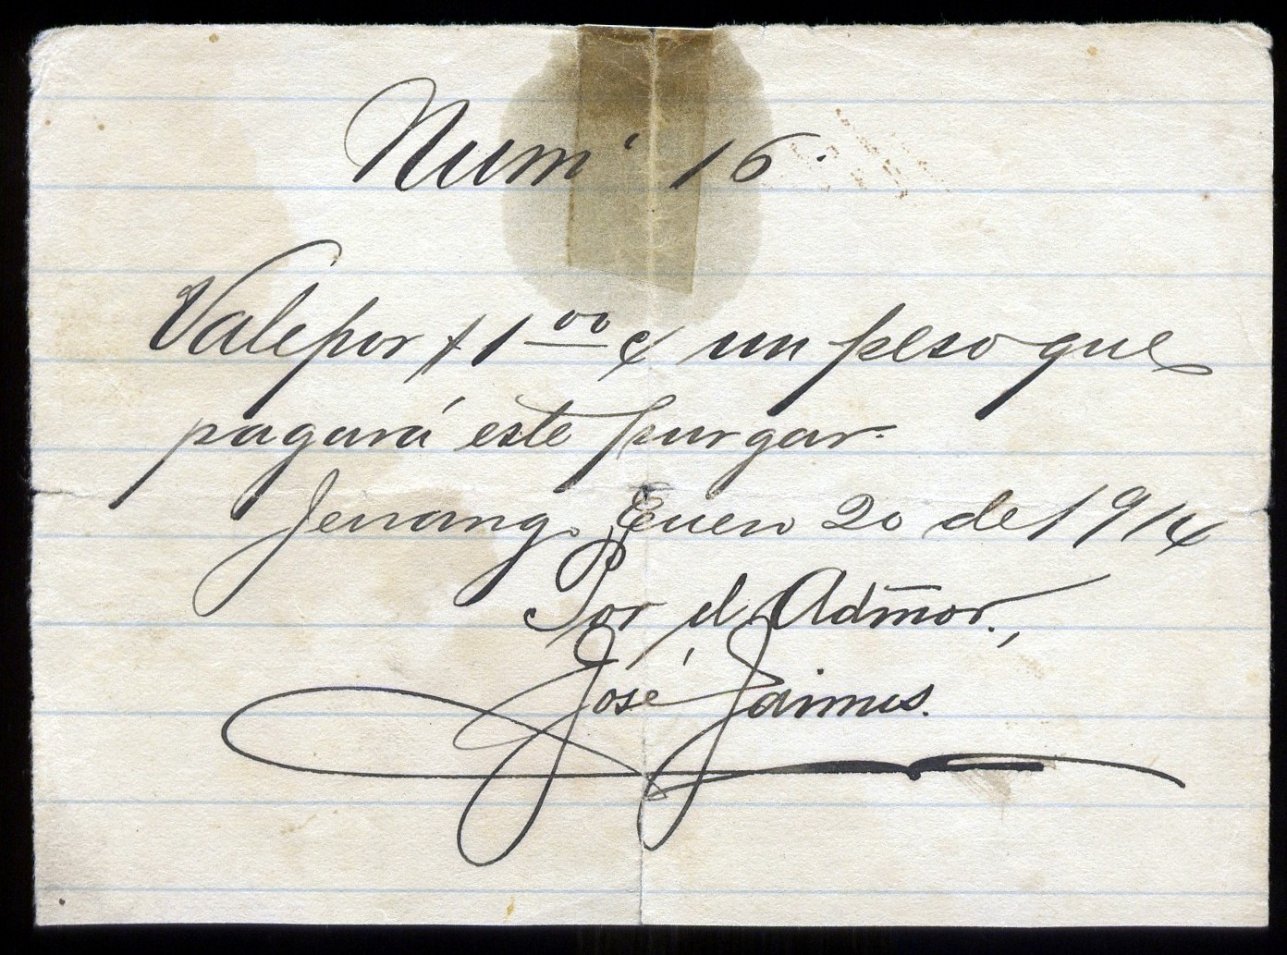 Num' 16.
Vale por $1 00 ¢ un peso que
pagará este purgar.
Jenang. Enero 20 de 1914
Por el Admor.,
José Jaimes.